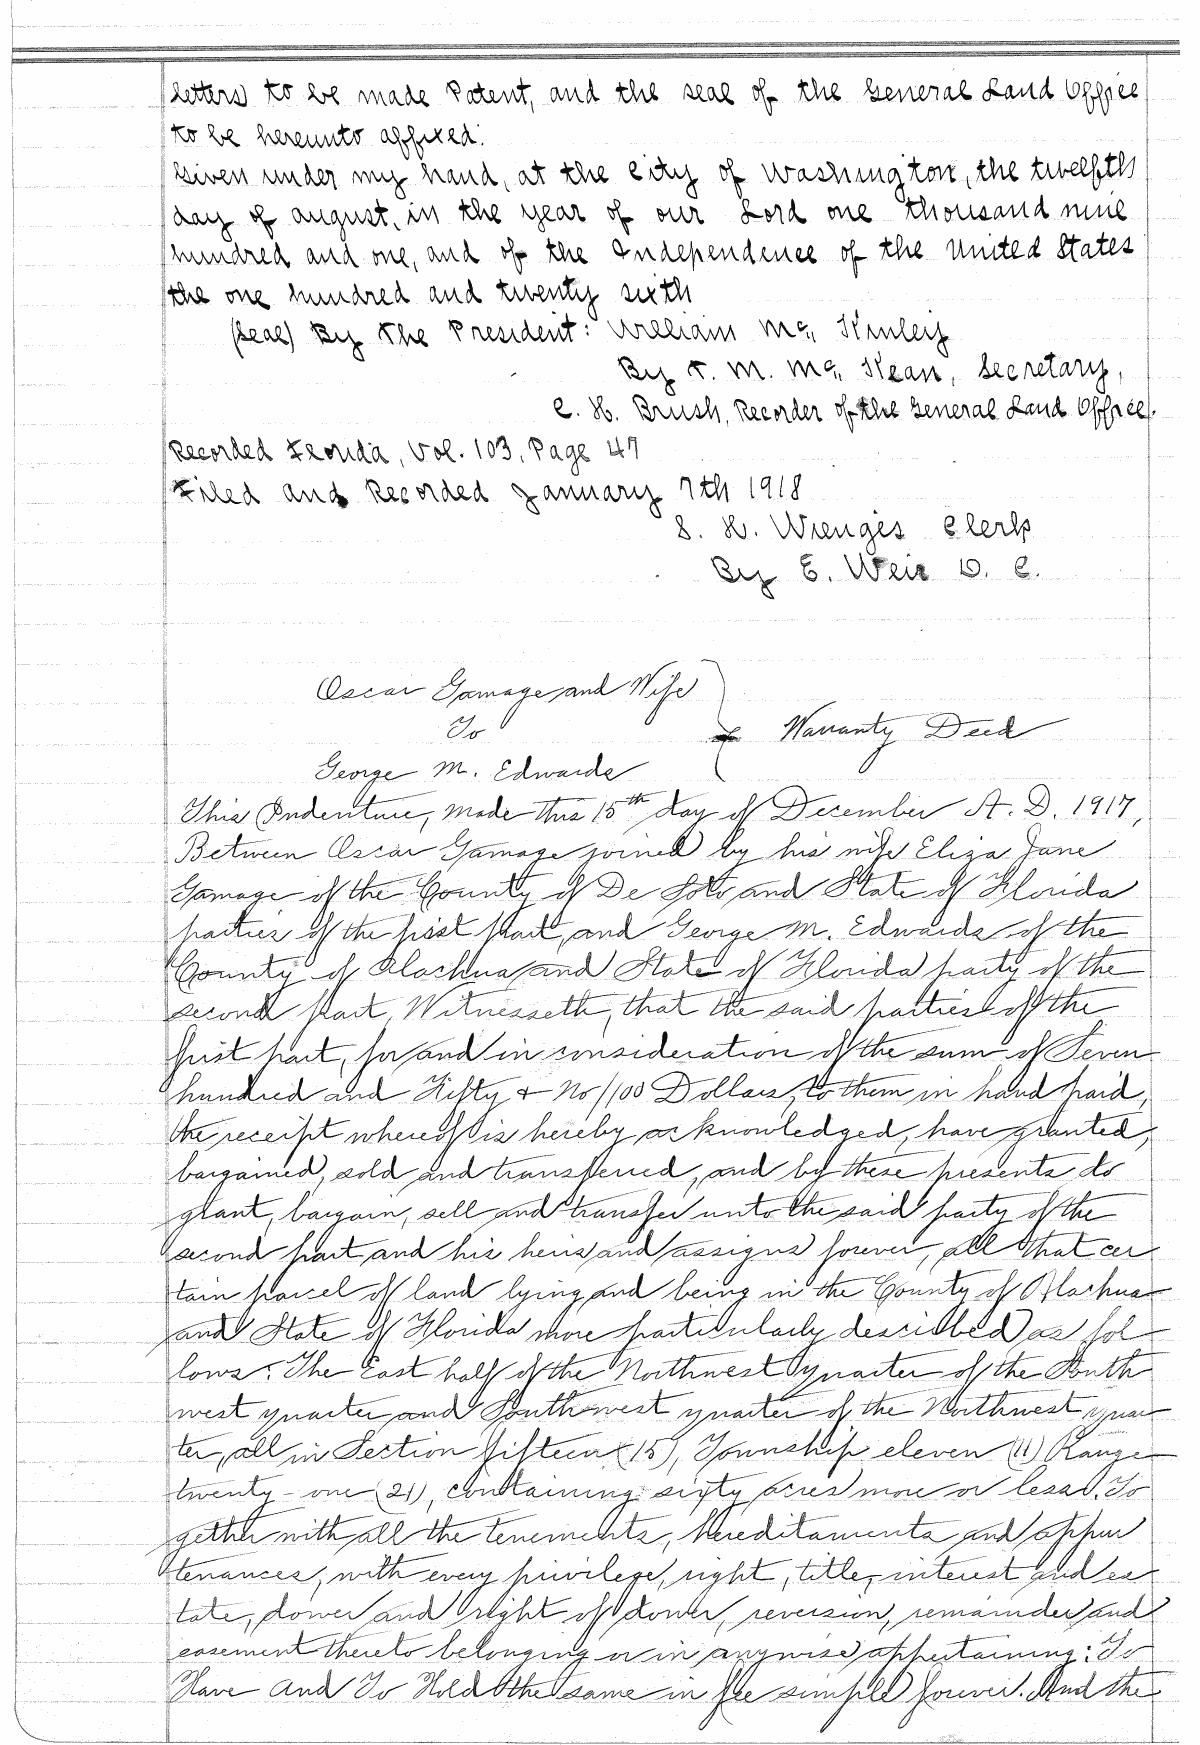 letters to be made Patent, and the seal of the General Land Office
to be hereunto affixed.
Given under my hand, at the City of Washington, the twelfth
day of august, in the year of our Lord one thousand nine
hundred and one, and of the Independence of the United States
the one hundred and twenty sixth
(Seal) By The President: William Mc, Kinley
By F. M. Mc, Kean, Secretary,
C. H. Brush, Recorder of the General Land Office.
Recorded Florida, Vol. 103, Page 47
Filed and Recorded January 7th 1918
S. H. Wienges Clerk
By E. Weir D. C.
Oscar Gamage and Wife
To
Warranty Deed
George M. Edwards
This Indenture, made this 15th day of December A. D. 1917,
Between Oscar Gamage joined by his wife Eliza Jane
Gamage of the County of De Soto and State of Florida
parties of the first part, and George M. Edwards of the
County of Alachua and State of Florida party of the
second part, Witnesseth, that the said parties of the
first part, for and in consideration of the sum of Seven
hundred and Fifty & No/100 Dollars, to them in hand paid,
the receipt whereof is hereby acknowledged, have granted,
bargained, sold and transferred, and by these presents do
grant, bargain, sell and transfer unto the said party of the
second part and his heirs and assigns forever, all that cer
tain parcel of land lying and being in the County of Alachua
and State of Florida more particularly described as fol
lows: The East half of the Northwest quarter of the South
west quarter and Southwest quarter of the Northwest quar
ter, all in Section fifteen (15), Township eleven (11) Range
twenty-one (21), containing sixty acres more or less. To
gether with all the tenements, hereditaments and appur
tenances, with every privilege, right, title, interest and es
tate, dower and right of dower, reversion, remainder and
easement thereto belonging or in anywise appertaining: To
Have and To Hold the same in fee simple forever. And the